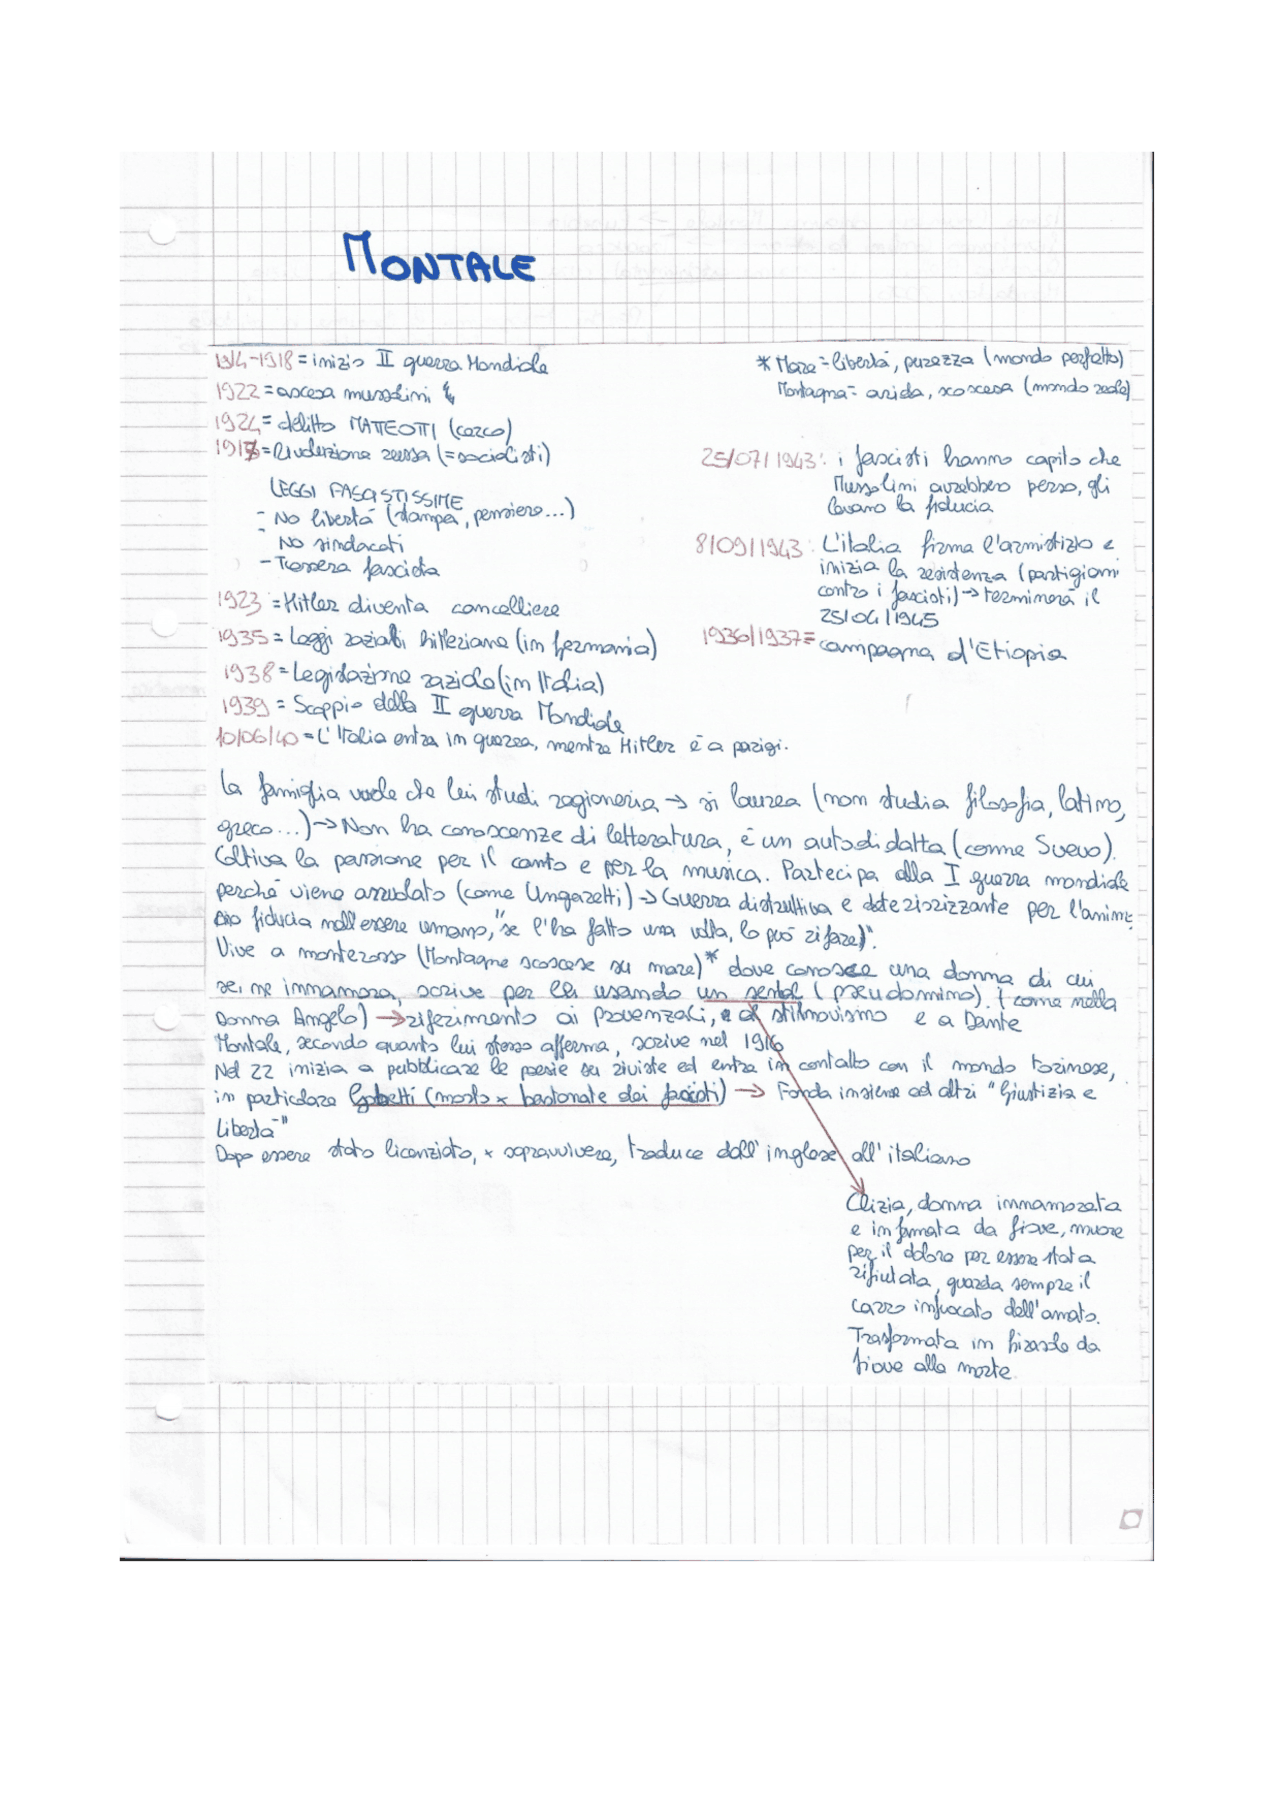 MONTALE
1914-1918 = inizio II guerra Mondiale
1922 = ascesa mussolini
1924 = delitto MATTEOTTI (cerco)
1917 = Rivoluzione russa (= socialisti)
LEGGI FASCISTISSIME
- No libertà (stampa, pensiero...)
- No sindacati
- Tessera fascista
1923 = Hitler diventa cancelliere
1935 = Leggi raziali hitleriane (in germania)
1938 = Legislazione raziale (in Italia)
1939 = Scoppio della II guerra Mondiale
10/06/40 = L'Italia entra in guerra, mentre Hitler è a parigi.
* Mare = libertà, purezza (mondo perfetto)
Montagna = arida, scoscesa (mondo reale)
25/07/1943: i fascisti hanno capito che
Mussolini avrebbero perso, gli
levano la fiducia
8/09/1943: L'italia firma l'armistizio e
inizia la resistenza (partigiani
contro i fascisti) → terminerà il
25/04/1945
1936/1937 = campagna d'Etiopia
La famiglia vuole che lui studi ragioneria → si laurea (non studia filosofia, latino,
greco...) → Non ha conoscenze di letteratura, è un autodidatta (come Svevo).
Coltiva la passione per il canto e per la musica. Partecipa alla I guerra mondiale
perché viene arruolato (come Ungaretti) → Guerra distruttiva e deteriorizzante per l'anim
fiducia nell'essere umano, "se l'ha fatto una volta, lo può rifare)".
Vive a monterosso (Montagne scoscese su mare)* dove conosce una donna di cui
se ne innamora, scrive per lei usando un senhal (pseudonimo). (come nella
Donna Angelo) → riferimento ai provenzali, e al stilnovismo e a Dante
Montale, secondo quanto lui stesso afferma, scrive nel 1916
Nel 22 inizia a pubblicare le poesie su riviste ed entra in contatto con il mondo torinese,
in particolare Gobetti (morto x bastonate dei fascisti) → Fonda insieme ad altri "Giustizia e
Libertà"
Dopo essere stato licenziato, x sopravvivere, traduce dall'inglese all'italiano
Clizia, donna innamorata
e infamata da giove, muore
per il dolore per essere stata
rifiutata, guarda sempre il
carro infuocato dell'amato.
Trasformata in girasole da
giove alla morte.